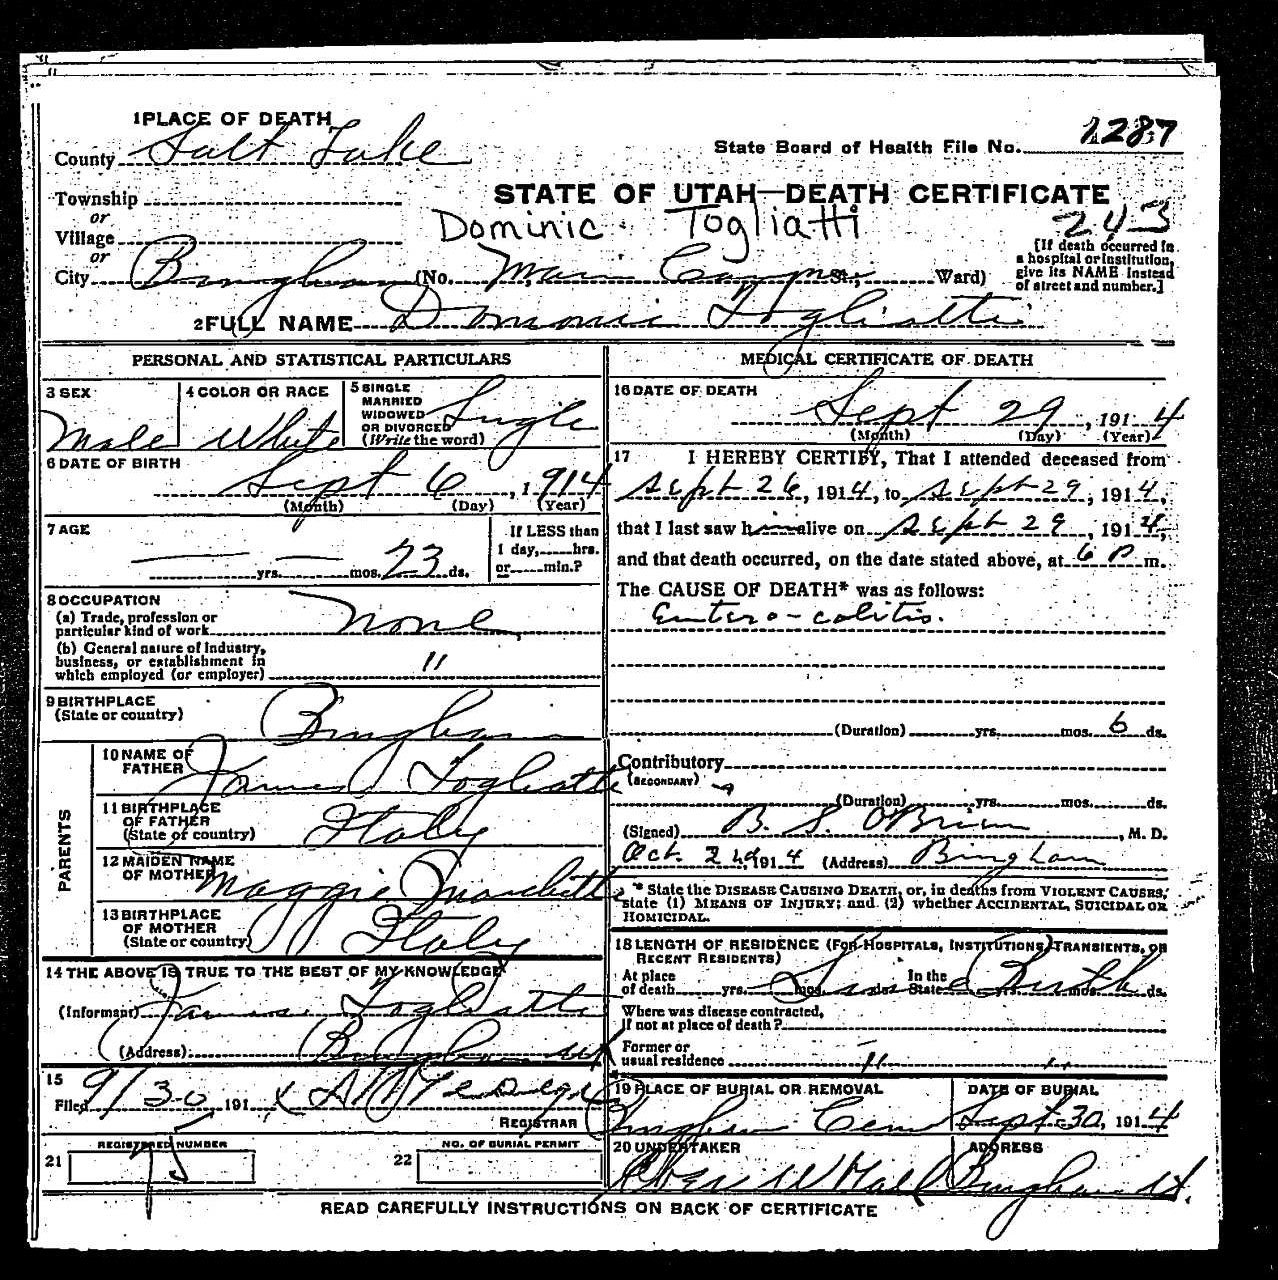 1 PLACE OF DEATH
County Salt Lake
State Board of Health File No. 1287
Township
or
Village
or
City Bingham (No. Main Canyon St., Ward)
STATE OF UTAH—DEATH CERTIFICATE
Dominic Togliatti
243
[If death occurred in
a hospital or institution,
give its NAME instead
of street and number.]
2 FULL NAME Dominic Togliatti
PERSONAL AND STATISTICAL PARTICULARS
3 SEX
Male
4 COLOR OR RACE
White
5 SINGLE
MARRIED
WIDOWED
OR DIVORCED
(Write the word)
Single
6 DATE OF BIRTH
Sept 6, 1914
(Month) (Day) (Year)
7 AGE
— yrs. — mos. 23 ds.
If LESS than
1 day, hrs.
or min.?
8 OCCUPATION
(a) Trade, profession or
particular kind of work None
(b) General nature of industry,
business, or establishment in
which employed (or employer) "
9 BIRTHPLACE
(State or country)
Bingham
PARENTS
10 NAME OF
FATHER
James Togliatti
11 BIRTHPLACE
OF FATHER
(State or country)
Italy
12 MAIDEN NAME
OF MOTHER
Maggie
13 BIRTHPLACE
OF MOTHER
(State or country)
Italy
14 THE ABOVE IS TRUE TO THE BEST OF MY KNOWLEDGE
(Informant) James Togliatti
(Address) Bingham Ut
15
Filed 9/30 191 4
REGISTRAR
REGISTERED NUMBER
21 75
NO. OF BURIAL PERMIT
22
MEDICAL CERTIFICATE OF DEATH
16 DATE OF DEATH
Sept 29, 1914
(Month) (Day) (Year)
17 I HEREBY CERTIFY, That I attended deceased from
Sept 26, 1914, to Sept 29, 1914,
that I last saw him alive on Sept 29, 1914,
and that death occurred, on the date stated above, at 6 P m.
The CAUSE OF DEATH* was as follows:
Entero-colitis.
(Duration) yrs. mos. 6 ds.
Contributory
(SECONDARY)
(Duration) yrs. mos. ds.
(Signed) B. S. O'Brien, M. D.
Oct. 1914 (Address) Bingham
* State the DISEASE CAUSING DEATH, or, in deaths from VIOLENT CAUSES,
state (1) MEANS OF INJURY; and (2) whether ACCIDENTAL, SUICIDAL OR
HOMICIDAL.
18 LENGTH OF RESIDENCE (FOR HOSPITALS, INSTITUTIONS, TRANSIENTS, OR
RECENT RESIDENTS)
At place
of death yrs. mos. ds. In the
State yrs. mos. ds.
Since Birth
Where was disease contracted,
if not at place of death?
Former or
usual residence " "
19 PLACE OF BURIAL OR REMOVAL
Bingham Cem
DATE OF BURIAL
Sept 30, 1914
20 UNDERTAKER
ADDRESS
Bingham Ut.
READ CAREFULLY INSTRUCTIONS ON BACK OF CERTIFICATE